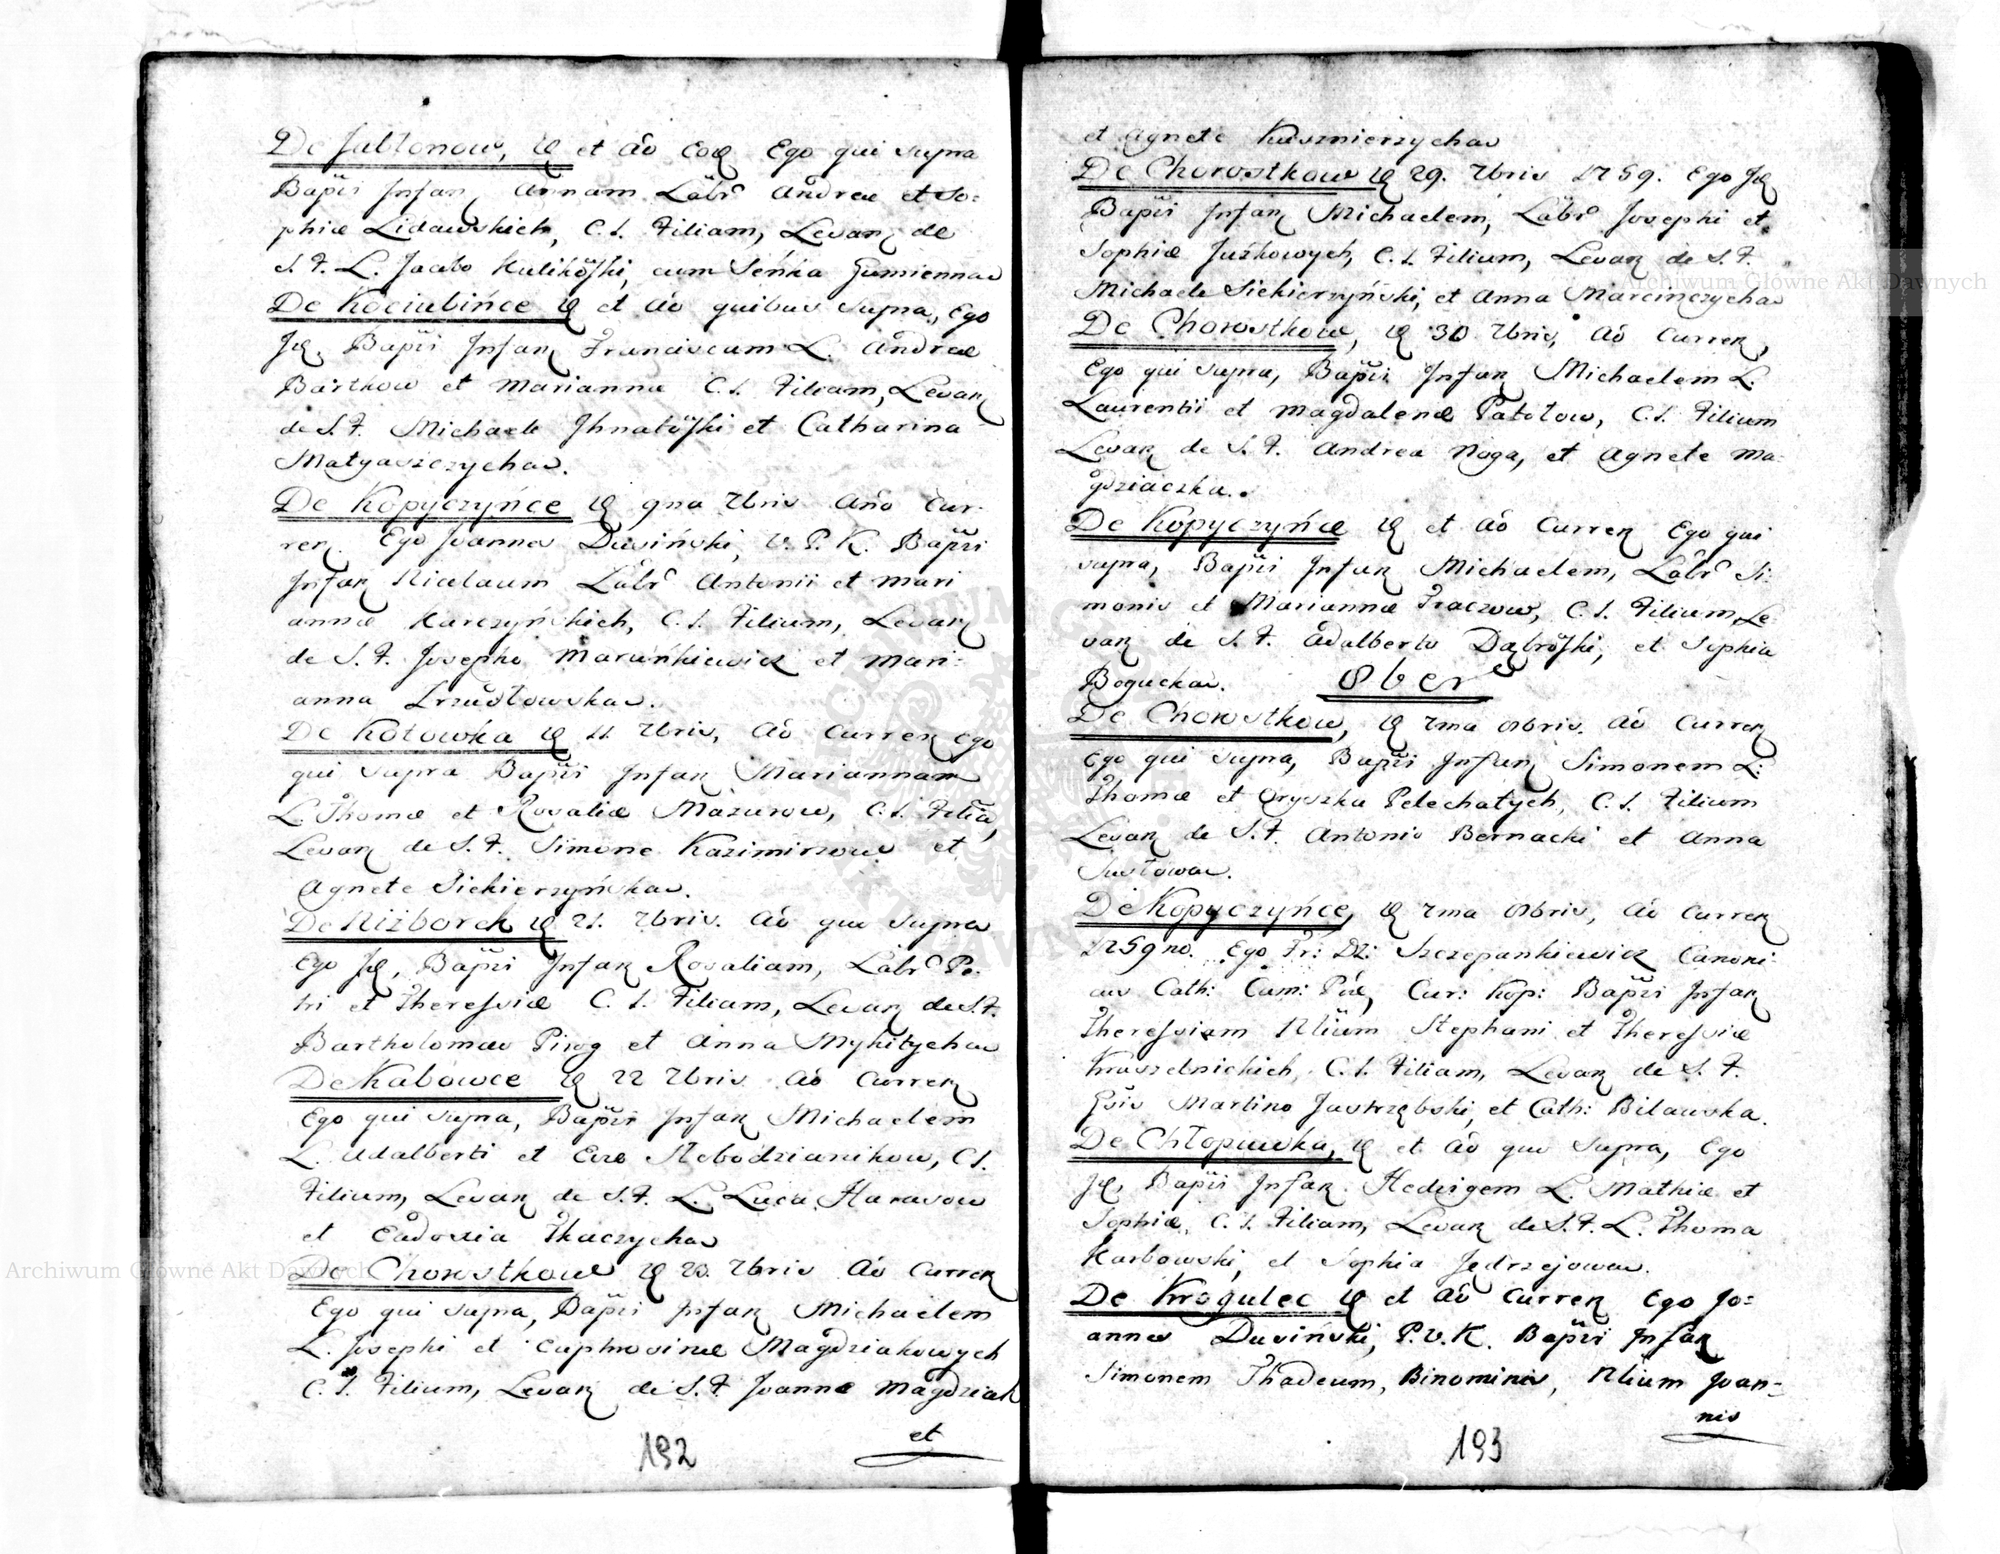 De Jabłonow, et aō eoq Ego qui supra
Bapzi Infan Annam Labr Andreæ et So=
phiæ Lidawskich, C. L. Filiam, Levan de
S. F. L. Jacobo Kulikoski, cum Senka Gumienna
De Kociubińce et aō quibus supra, Ego
Id, Bapzi Infan Franciscum L. Andreæ
Bartkow et Mariannæ C. L. Filium, Levan
de S. F. Michaele Ihnatoski et Catharina
Matyaszczycha.
De Kopyczyńce 9na 7bris Año Cur-
ren. Ego Joannes Dusiński, V. P. K. Bapzi
Infan Nicolaum Labr Antonii et Mari
annæ Karczyńskich, C. L. Filium, Levan
de S. F. Josepho Marunkiewicz et Mari=
anna
De Kotowka 11 7bris, Aō Curren Ego
qui supra Bapzi Infan Mariannam
L. Thomæ et Rosaliæ Mazurow, C. L. Filiā,
Levan de S. F. Simone Kazimirow et
Agnete Siekierzyńska.
De Niżborek 21. 7bris. Aō quo supra
Ego Id, Bapzi Infan Rosaliam, Labr Pe-
tri et Theressiæ C. L. Filiam, Levan de S. F.
Bartholomæo Pirog et Anna Mykitycha
De Kabowce 22 7bris Aō Curren
Ego qui supra, Bapzi Infan Michaelem
L. Adalberti et Evæ Nebodzianikow, C L.
Filium, Levan de S. F. L. Luca Harasow
et Eudossia Tkaczycha
De Chorostkow 23. 7bris Aō Curren
Ego qui supra, Bapzi Infan Michaelem
L. Josephi et Euphrosinæ Magdziakowych
C. L. Filium, Levan de S. F Joanne Magdziak
et
192
et Agnete Kuzmierzycha
De Chorostkow 29. 7bris 1759. Ego Id
Bapzi Infan Michaelem, Labr Josephi et
Sophiæ Juśkowych, C. L Filium, Levan de S. F.
Michaele Siekierzyński, et Anna Marcinczycha
De Chorostkow, 30 7bris, Aō Curren,
Ego qui supra, Bapzi Infan Michaelem L.
Laurentii et Magdalenæ Patotow, C. L. Filium
Levan de S. F. Andrea Noga, et Agnete Ma-
gdziaczka.
De Kopyczyńce et aō Curren Ego qui
supra, Bapzi Infan Michaelem, Labr Si-
monis et Mariannæ Traczow, C. L. Filium, Le-
van de S. F. Adalberto Dąbroski, et Sophia
Bogucka. 8ber
De Chorostkow, 7ma 8bris. Aō Curren
Ego qui supra, Bapzi Infan Simonem L:
Thomæ et Oryszka Pelechatych, C. L. Filium
Levan de S. F. Antonio Bernacki et Anna
Szustowa.
De Kopyczyńce, 7ma 8bris, Aō Curren
1759no. Ego Fr: Dz: Szczepankiewicz Canoni-
cus Cath: Cam: Cur: Kop: Bapzi Infan
Theressiam Nlium Stephani et Theressiæ
Kruszelnickich, C. L. Filiam, Levan de S. F.
Gsis Martino Jastrzębski, et Cath: Bilawska.
De Chłopuwka, et Aō quo supra, Ego
Id, Bapzi Infan. Hedvigem L. Mathiæ et
Sophiæ, C. L. Filiam, Levan de S. F. L. Thoma
Karbowski, et Sophia Jędrzejowa.
De Krogulec et Aō Curren Ego Jo=
annes Dusiński, P. V. K. Bapzi Infan
Simonem Thadeum, Binominis, Nlium Joan=
nis
193
Archiwum Główne Akt Dawnych
Archiwum Główne Akt Dawnych